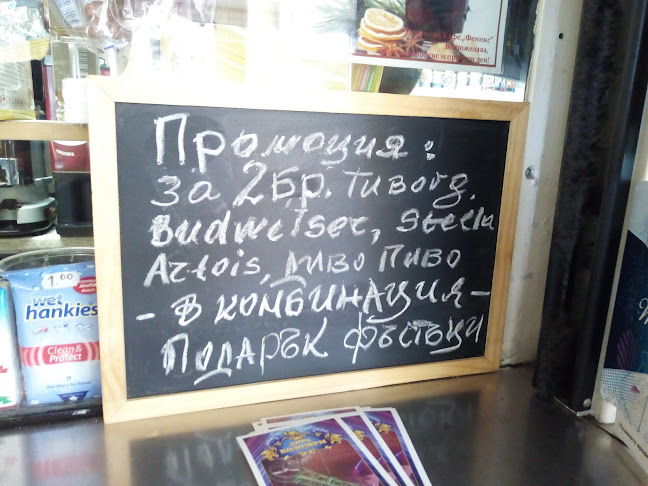 "Феникс"
Промоция:
за 2бр. Tuborg.
Budweiser, Stella
Artois, Диво Пиво
- В КОМБИНАЦИЯ -
ПОДАРЪК ФЪСТЪЦИ
1.60
wet
hankies
Clean &
Protect